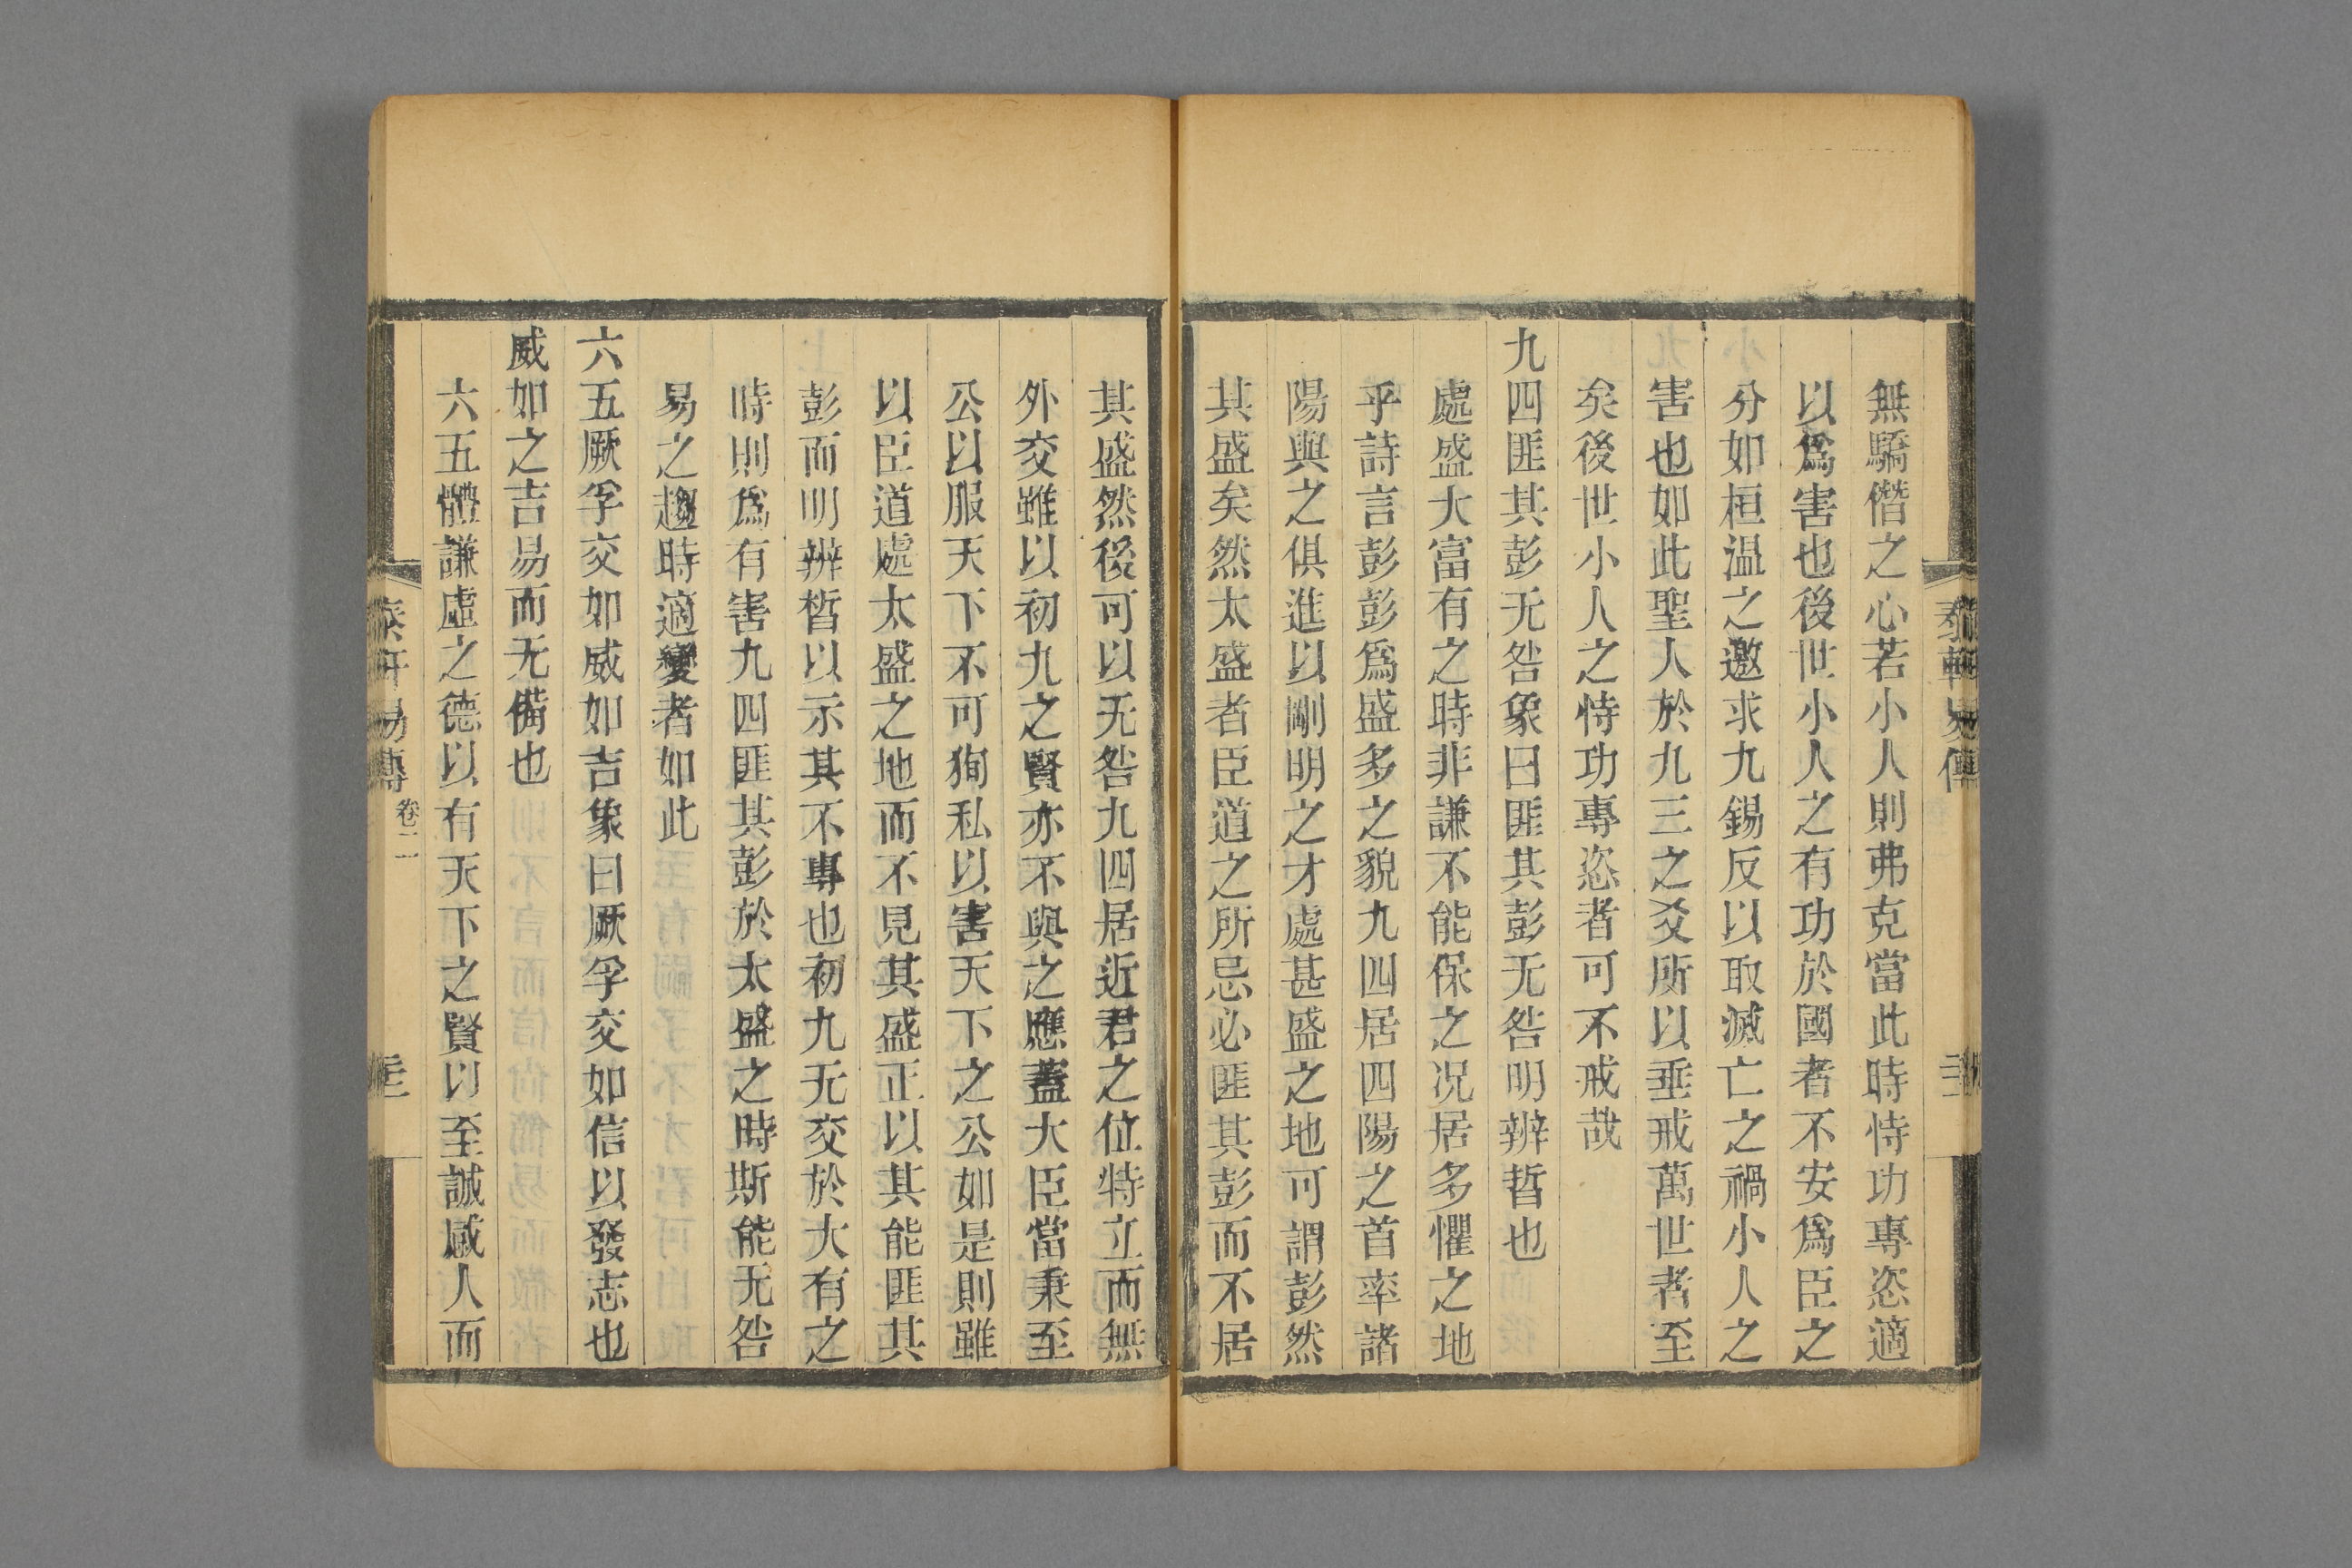 無驕僭之心若小人則弗克當此時恃功專恣適
以爲害也後世小人之有功於國者不安爲臣之
分如桓温之邀求九錫反以取滅亡之禍小人之
害也如此聖人於九三之爻所以垂戒萬世者至
矣後世小人之恃功專恣者可不戒哉
九四匪其彭无咎象曰匪其彭无咎明辨晢也
處盛大富有之時非謙不能保之况居多懼之地
乎詩言彭彭爲盛多之貌九四居四陽之首率諸
陽與之俱進以剛明之才處甚盛之地可謂彭然
其盛矣然太盛者臣道之所忌必匪其彭而不居
其盛然後可以无咎九四居近君之位特立而無
外交雖以初九之賢亦不與之應蓋大臣當秉至
公以服天下不可狥私以害天下之公如是則雖
以臣道處太盛之地而不見其盛正以其能匪其
彭而明辨晢以示其不專也初九无交於大有之
時則爲有害九四匪其彭於太盛之時斯能无咎
易之趨時適變者如此
六五厥孚交如威如吉象曰厥孚交如信以發志也
威如之吉易而无備也
六五體謙虛之德以有天下之賢以至誠感人而
易傳
卷二